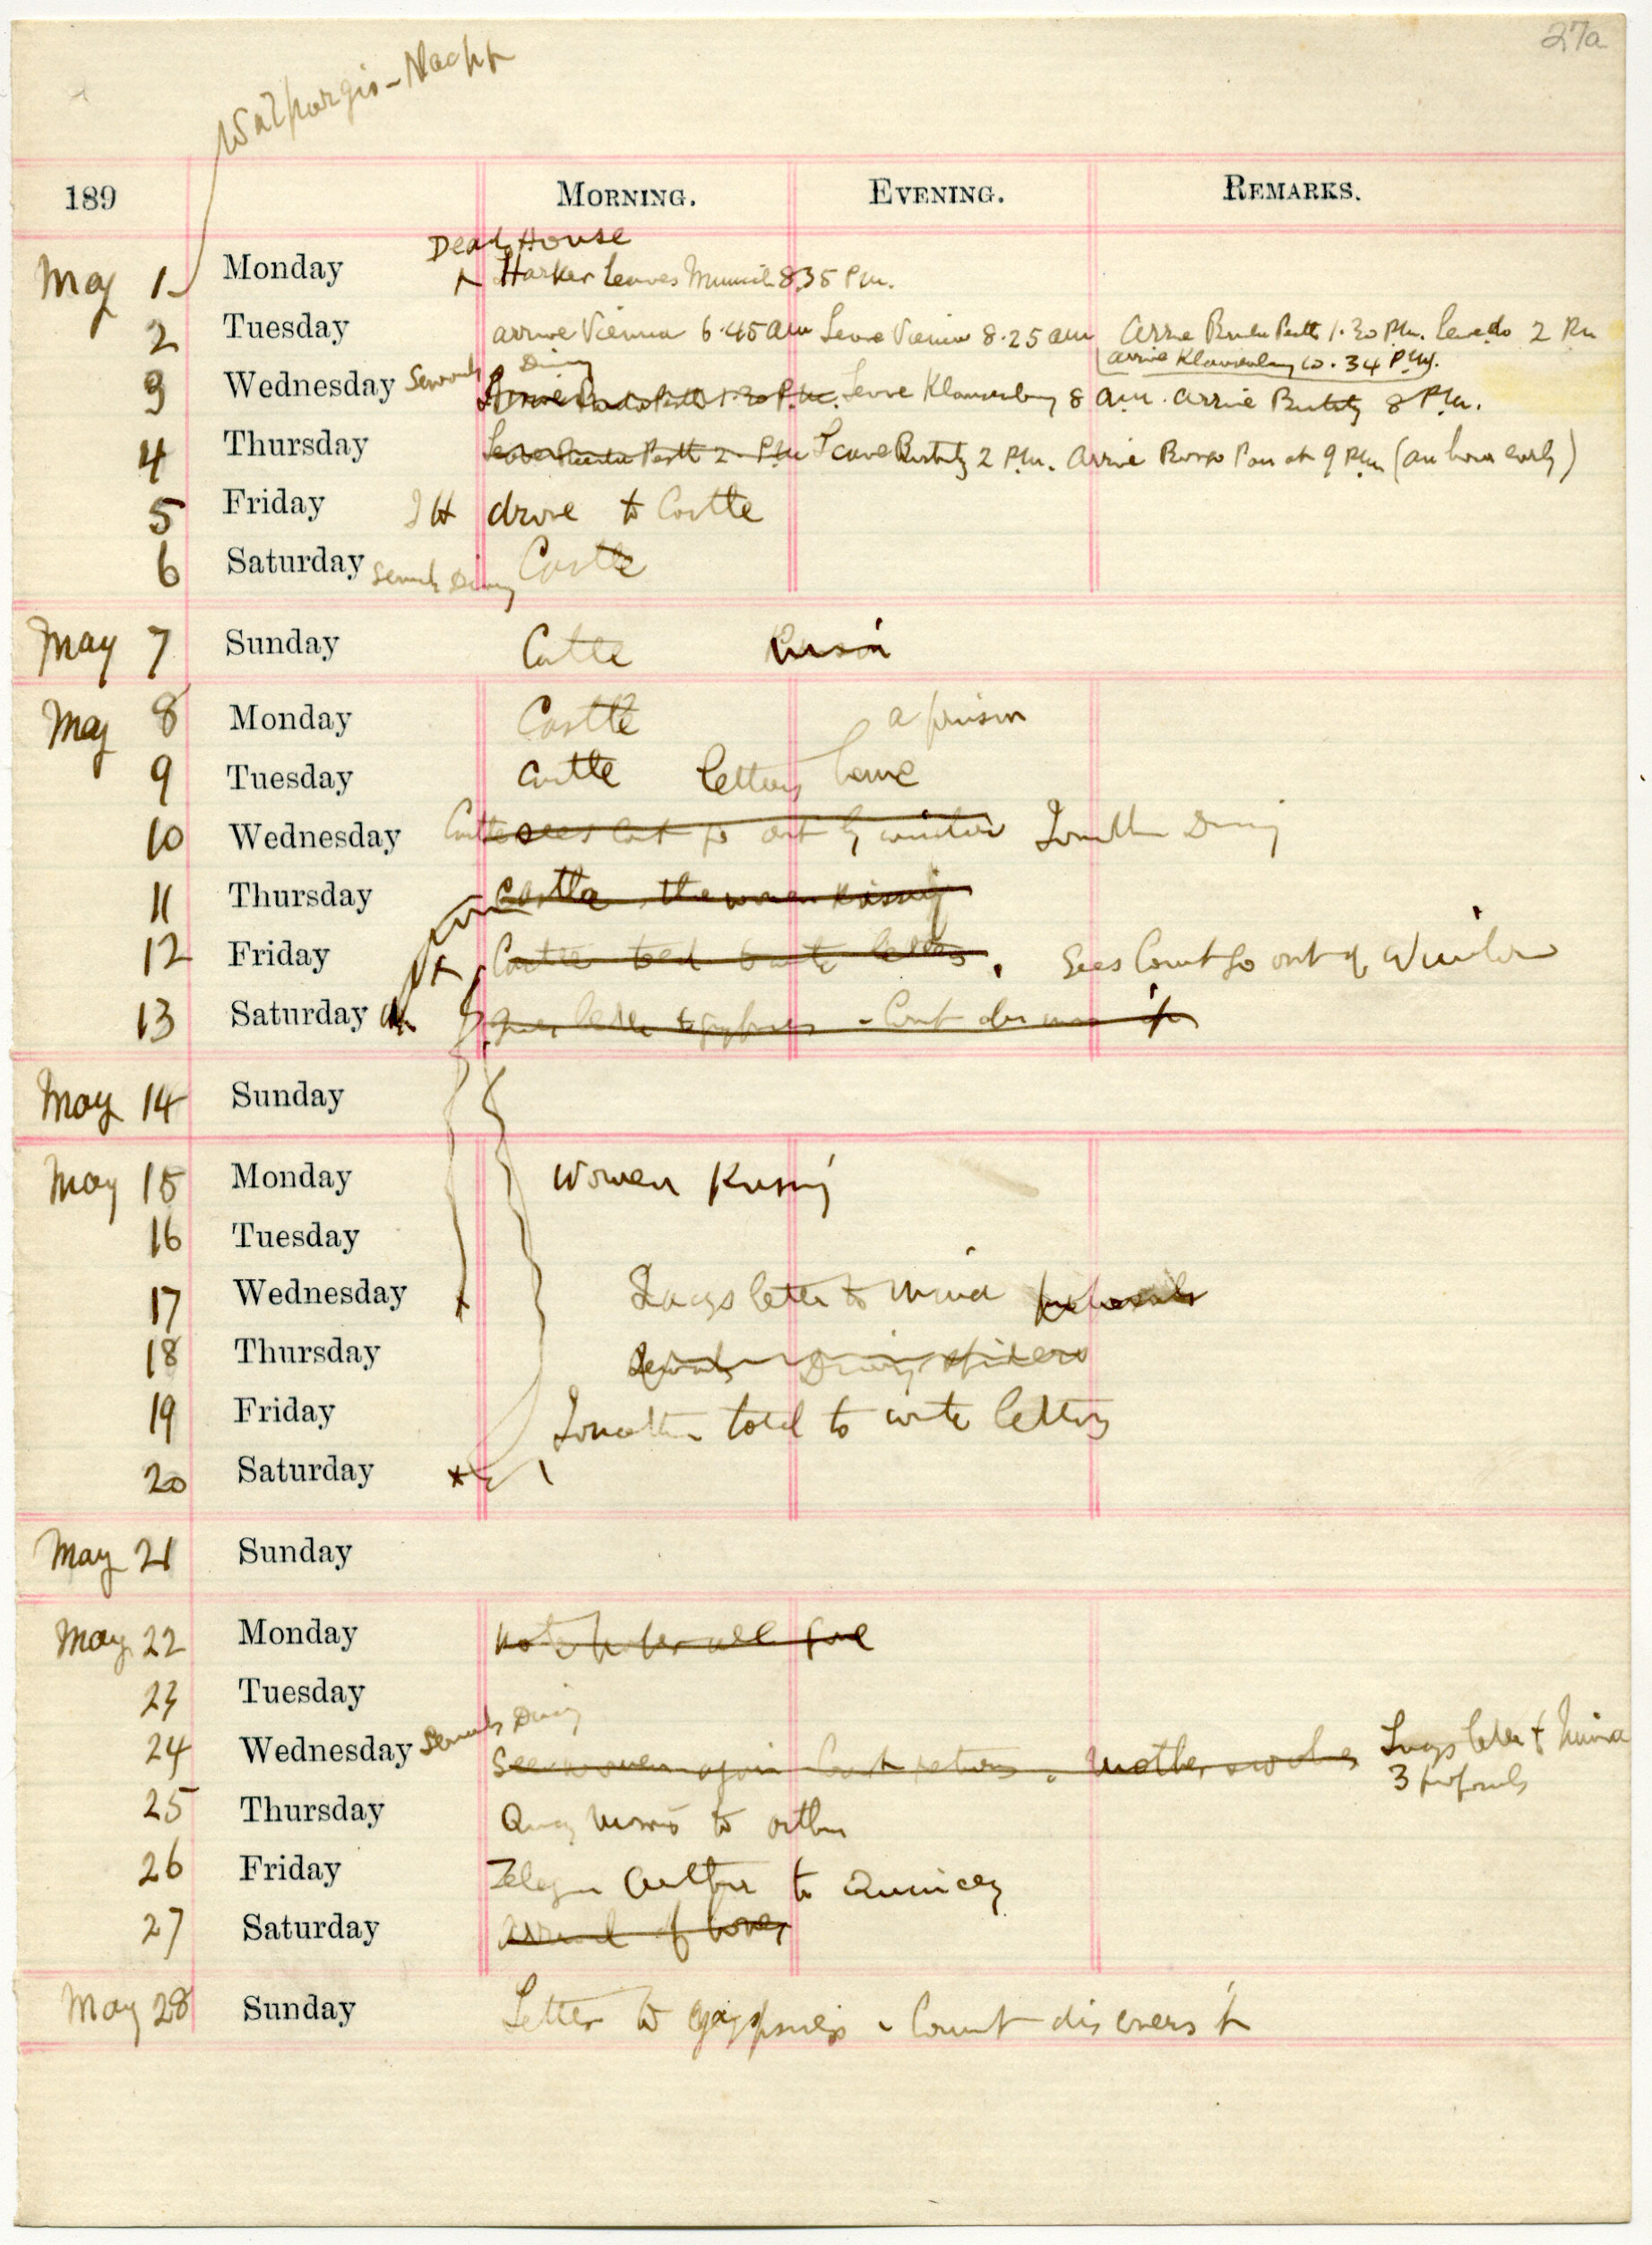 27a
Walpurgis-Nacht
189 MORNING. EVENING. REMARKS.
Dead House
May 1 Monday Harker leaves Munich 8.35 P.m.
2 Tuesday arrive Vienna 6.45 am Leave Vienna 8.25 am arrive Buda Pesth 1.30 P.m. leave do 2 Pm
arrive Klausenburg 10.34 P.M.
Sewards Diary
3 Wednesday Arrive Buda Pesth 1.30 P.m. Leave Klausenburg 8 a.m. arrive Bistritz 8 P.m.
4 Thursday Leave Buda Pesth 2 P.m Leave Bistritz 2 P.m. arrive Borgo Pass at 9 P.m (an hour early)
5 Friday JH drive to Castle
6 Saturday Sewards Diary Castle
May 7 Sunday Castle Prison
May 8 Monday Castle a prison
9 Tuesday Castle letters home
10 Wednesday Castle sees Count go out by window Jonathan Diary
11 Thursday Castle the women kissing
12 Friday Castle told to write letters. Sees Count go out of Window
13 Saturday gives letter to gypsies - Count discovers it
May 14 Sunday
May 15 Monday Women Kissing
16 Tuesday
17 Wednesday Lucys letter to Mina proposals
18 Thursday Sewards Diary spiders
19 Friday Jonathan told to write letters
20 Saturday
May 21 Sunday
May 22 Monday note paper all gone
23 Tuesday
Sewards Diary
24 Wednesday See women again Count returns. Mother wolves Lucys letter to Mina
3 proposals
25 Thursday Quincy Morris to Arthur
26 Friday Telegram Arthur to Quincey
27 Saturday arrival of boxes
May 28 Sunday Letter to gypsies - Count discovers it